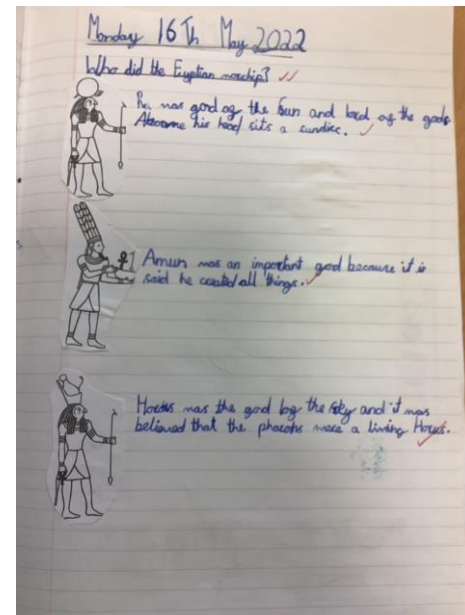 Monday 16Th May 2022
Who did the Eyyptian worship?
Ra was god of the Sun and lord of the gods.
Above his head sits a sundisc.
Amun was an important god because it is
said he created all things.
Horus was the god of the sky and it was
believed that the pharaohs were a living Horus.